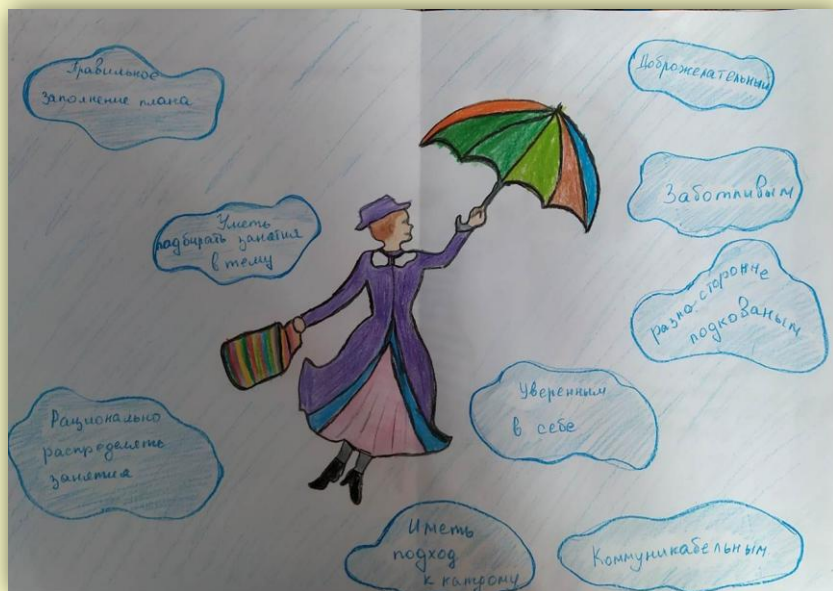 Правильное
заполнение плана
Уметь
подбирать занятия
в тему
Рационально
распределять
занятия
Доброжелательный
Заботливым
разно-сторонне
подкованым
Уверенным
в себе
Иметь
подход
к каждому
Коммуникабельным